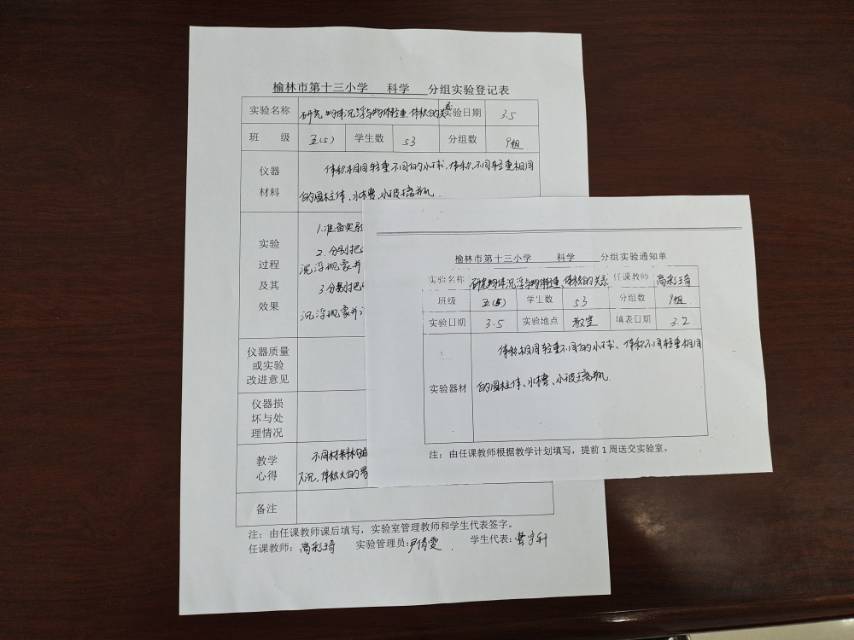 榆林市第十三小学 科学 分组实验登记表
实验名称 研究物体沉浮与物体轻重、体积的关系 实验日期 3.5
班 级 五(5) 学生数 53 分组数 9组
仪器 体积相同轻重不同的小球、体积不同轻重相同
材料 的圆柱体、水槽、小玻璃瓶
实验 1.准备实验
过程 2.分别把
及其 沉浮现象并
效果 3.分别把
沉浮现象并
仪器质量
或实验
改进意见
仪器损
坏与处
理情况
教学 不同材料构成
心得 沉,体积大的
备注
注:由任课教师课后填写,实验室管理教师和学生代表签字。
任课教师: 高彩琦 实验管理员: 尹倩雯 学生代表:
榆林市第十三小学 科学 分组实验通知单
实验名称 研究物体沉浮与物体轻重、体积的关系 任课教师 高彩琦
班级 五(5) 学生数 53 分组数 9组
实验日期 3.5 实验地点 教室 填表日期 3.2
体积相同轻重不同的小球、体积不同轻重相同
实验器材 的圆柱体、水槽、小玻璃瓶
注:由任课教师根据教学计划填写,提前1周送交实验室。